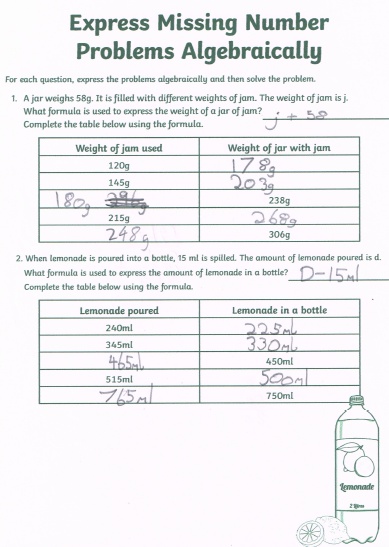 Express Missing Number
Problems Algebraically
For each question, express the problems algebraically and then solve the problem.
1. A jar weighs 58g. It is filled with different weights of jam. The weight of jam is j.
What formula is used to express the weight of a jar of jam? j + 58
Complete the table below using the formula.
Weight of jam used Weight of jar with jam
120g 178g
145g 203g
180g 238g
215g 268g
248g 306g
2. When lemonade is poured into a bottle, 15 ml is spilled. The amount of lemonade poured is d.
What formula is used to express the amount of lemonade in a bottle? D-15ml
Complete the table below using the formula.
Lemonade poured Lemonade in a bottle
240ml 225ml
345ml 330ml
465ml 450ml
515ml 500ml
765ml 750ml
Lemonade
2 litres